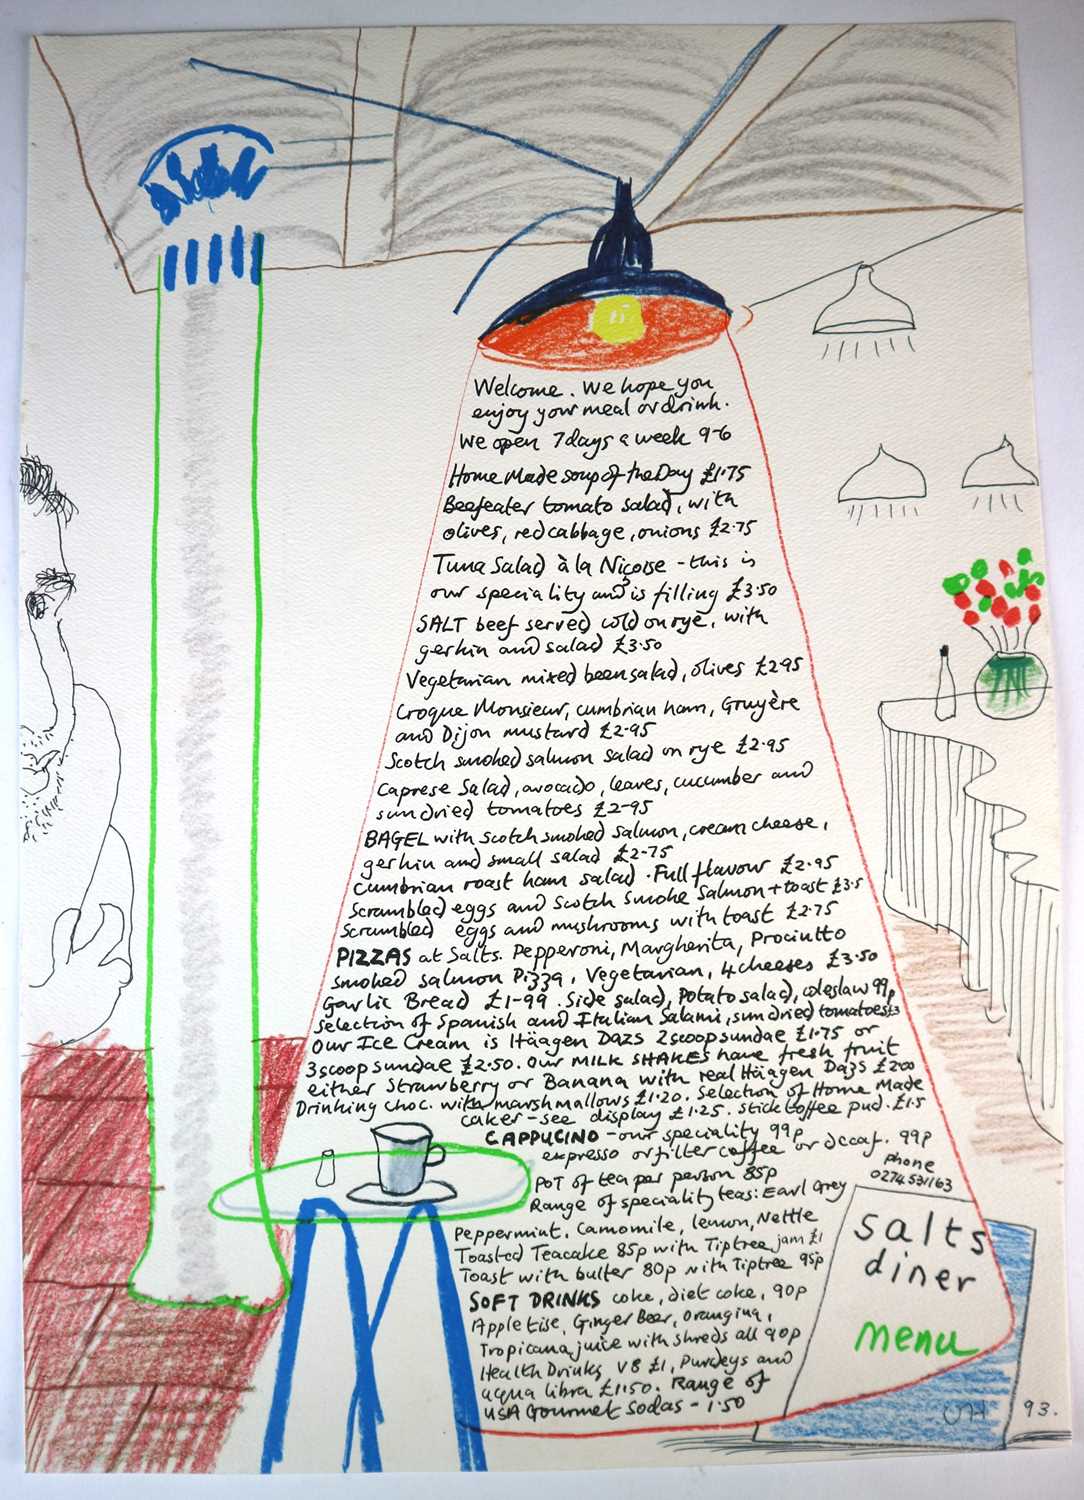 Welcome. We hope you
enjoy your meal or drink.
We open 7 days a week 9-6
Home Made soup of the Day £1.75
Beefeater tomato salad, with
olives, red cabbage, onions £2.75
Tuna Salad à la Niçoise - this is
our speciality and is filling £3.50
SALT beef served cold on rye, with
gerkin and salad £3.50
Vegetarian mixed been salad, olives £2.95
Croque Monsieur, cumbrian ham, Gruyère
and Dijon mustard £2.95
Scotch smoked salmon salad on rye £2.95
Caprese Salad, avocado, leaves, cucumber and
sun dried tomatoes £2-95
BAGEL with scotch smoked salmon, cream cheese,
gerkin and small salad £2-75
Cumbrian roast ham salad. Full flavour £2.95
Scrambled eggs and Scotch Smoke Salmon + toast £3.5
Scrambled eggs and mushrooms with toast £2.75
PIZZAS at Salts. Pepperoni, Margherita, Prociutto
smoked salmon Pizza, Vegetarian, 4 cheeses £3.50
Garlic Bread £1-99. Side salad, Potato salad, coleslaw 99p
Selection of Spanish and Italian Salami, sun dried tomatoes £3
Our Ice Cream is Häagen Dazs 2 scoop sundae £1.75 or
3 scoop sundae £2.50. Our MILK SHAKES have fresh fruit
either Strawberry or Banana with real Häagen Dazs £2.00
Drinking Choc. with marshmallows £1.20. Selection of Home Made
cakes - see display £1.25. Stick toffee pud. £1.5
CAPPUCINO - our speciality 99p
expresso or filter coffee or decaf. 99p
POT of tea per person 85p
Range of speciality teas: Earl Grey
Peppermint, Camomile, lemon, Nettle
Toasted Teacake 85p with Tiptree jam £1
Toast with butter 80p with Tiptree 95p
SOFT DRINKS coke, diet coke, 90p
Apple tise, Ginger Beer, Orangina,
Tropicana juice with shreds all 90p
Health Drinks V8 £1, Purdeys and
aqua libra £1.50. Range of
USA Gourmet Sodas - 1.50
phone
0274 531163
salts
diner
menu
DH 93.